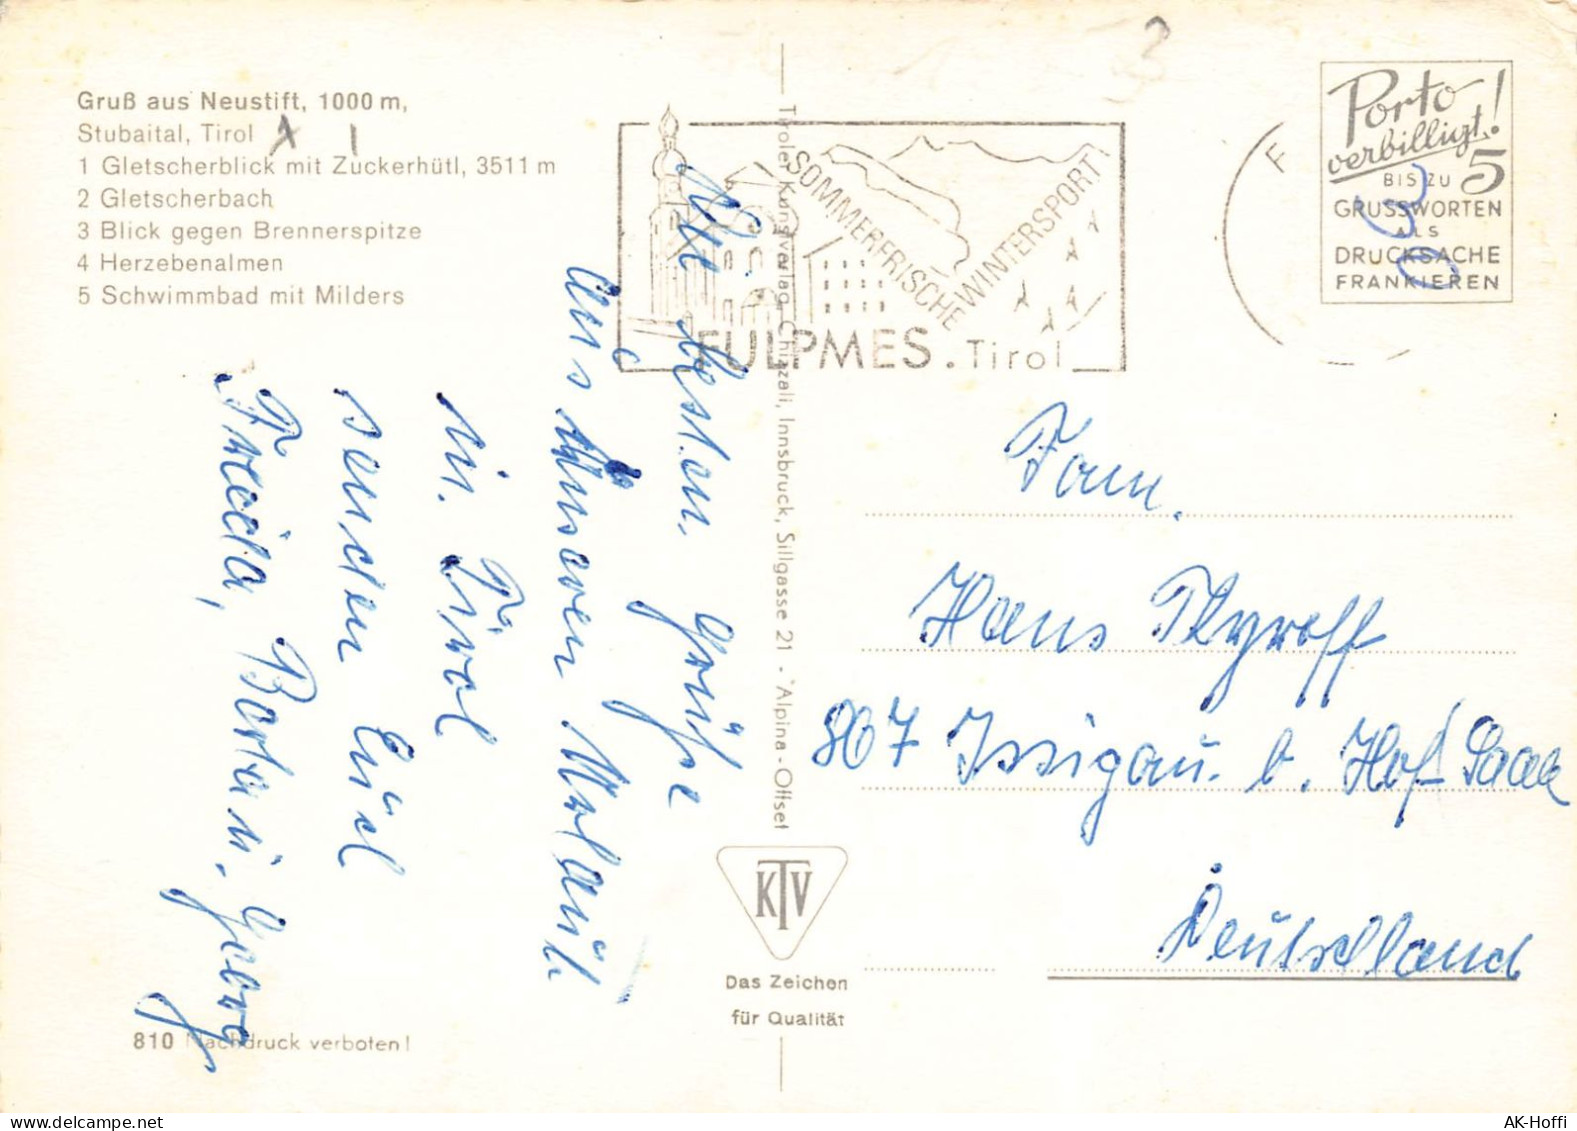 Gruß aus Neustift, 1000 m,
Stubaital, Tirol
1 Gletscherblick mit Zuckerhütl, 3511 m
2 Gletscherbach
3 Blick gegen Brennerspitze
4 Herzebenalmen
5 Schwimmbad mit Milders
SOMMERFRISCHE WINTERSPORT
FULPMES . Tirol
F
Porto
verbilligt!
BIS ZU 5
GRUSSWORTEN
ALS
DRUCKSACHE
FRANKIEREN
30
Tiroler Kunstverlag Chizzali, Innsbruck, Sillgasse 21 - "Alpina"-Offset
Die besten Grüße
aus Unseren Urlaub
in Tirol
senden Euch
Frieda, Barbara, Georg
Fam.
Hans Thyroff
867 Issigau b. Hof Saale
Deutschland
KTV
Das Zeichen
für Qualität
810 Nachdruck verboten!
AK-Hoffi